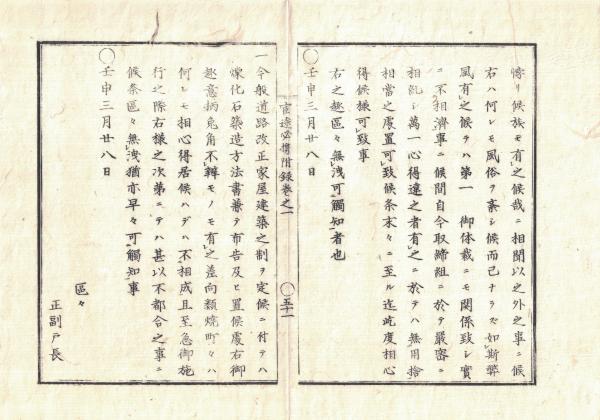 惰リ候族モ有之候哉ニ相聞以之外之事ニ候
右ハ何レモ風俗ヲ紊シ候而已ナラズ如斯弊
風有之候テハ第一　御体裁ニモ関係致シ實
ニ不相濟事ニ候間自今取締組ニ於テ嚴密ニ
相糺シ萬一心得違之者有之ニ於テハ無用捨
相當之處置可致候条末々ニ至ル迄屹度相心
得候様可致事
右之趣區々無洩可觸知者也
○壬申三月廿八日
官途必携附録巻之一
○五十一
一今般道路改正家屋建築之制ヲ定候ニ付テハ
煉化石築造方法書兼テ布告及ヒ置候處右御
趣意柄兎角不辨モノモ有之差向類燒町々ハ
何レモ相心得居候ハデハ不相成且至急御施
行之際右様之次第ニテハ甚以不都合之事ニ
候条區々無洩猶亦早々可觸知事
○壬申三月廿八日
區々
正副戸長